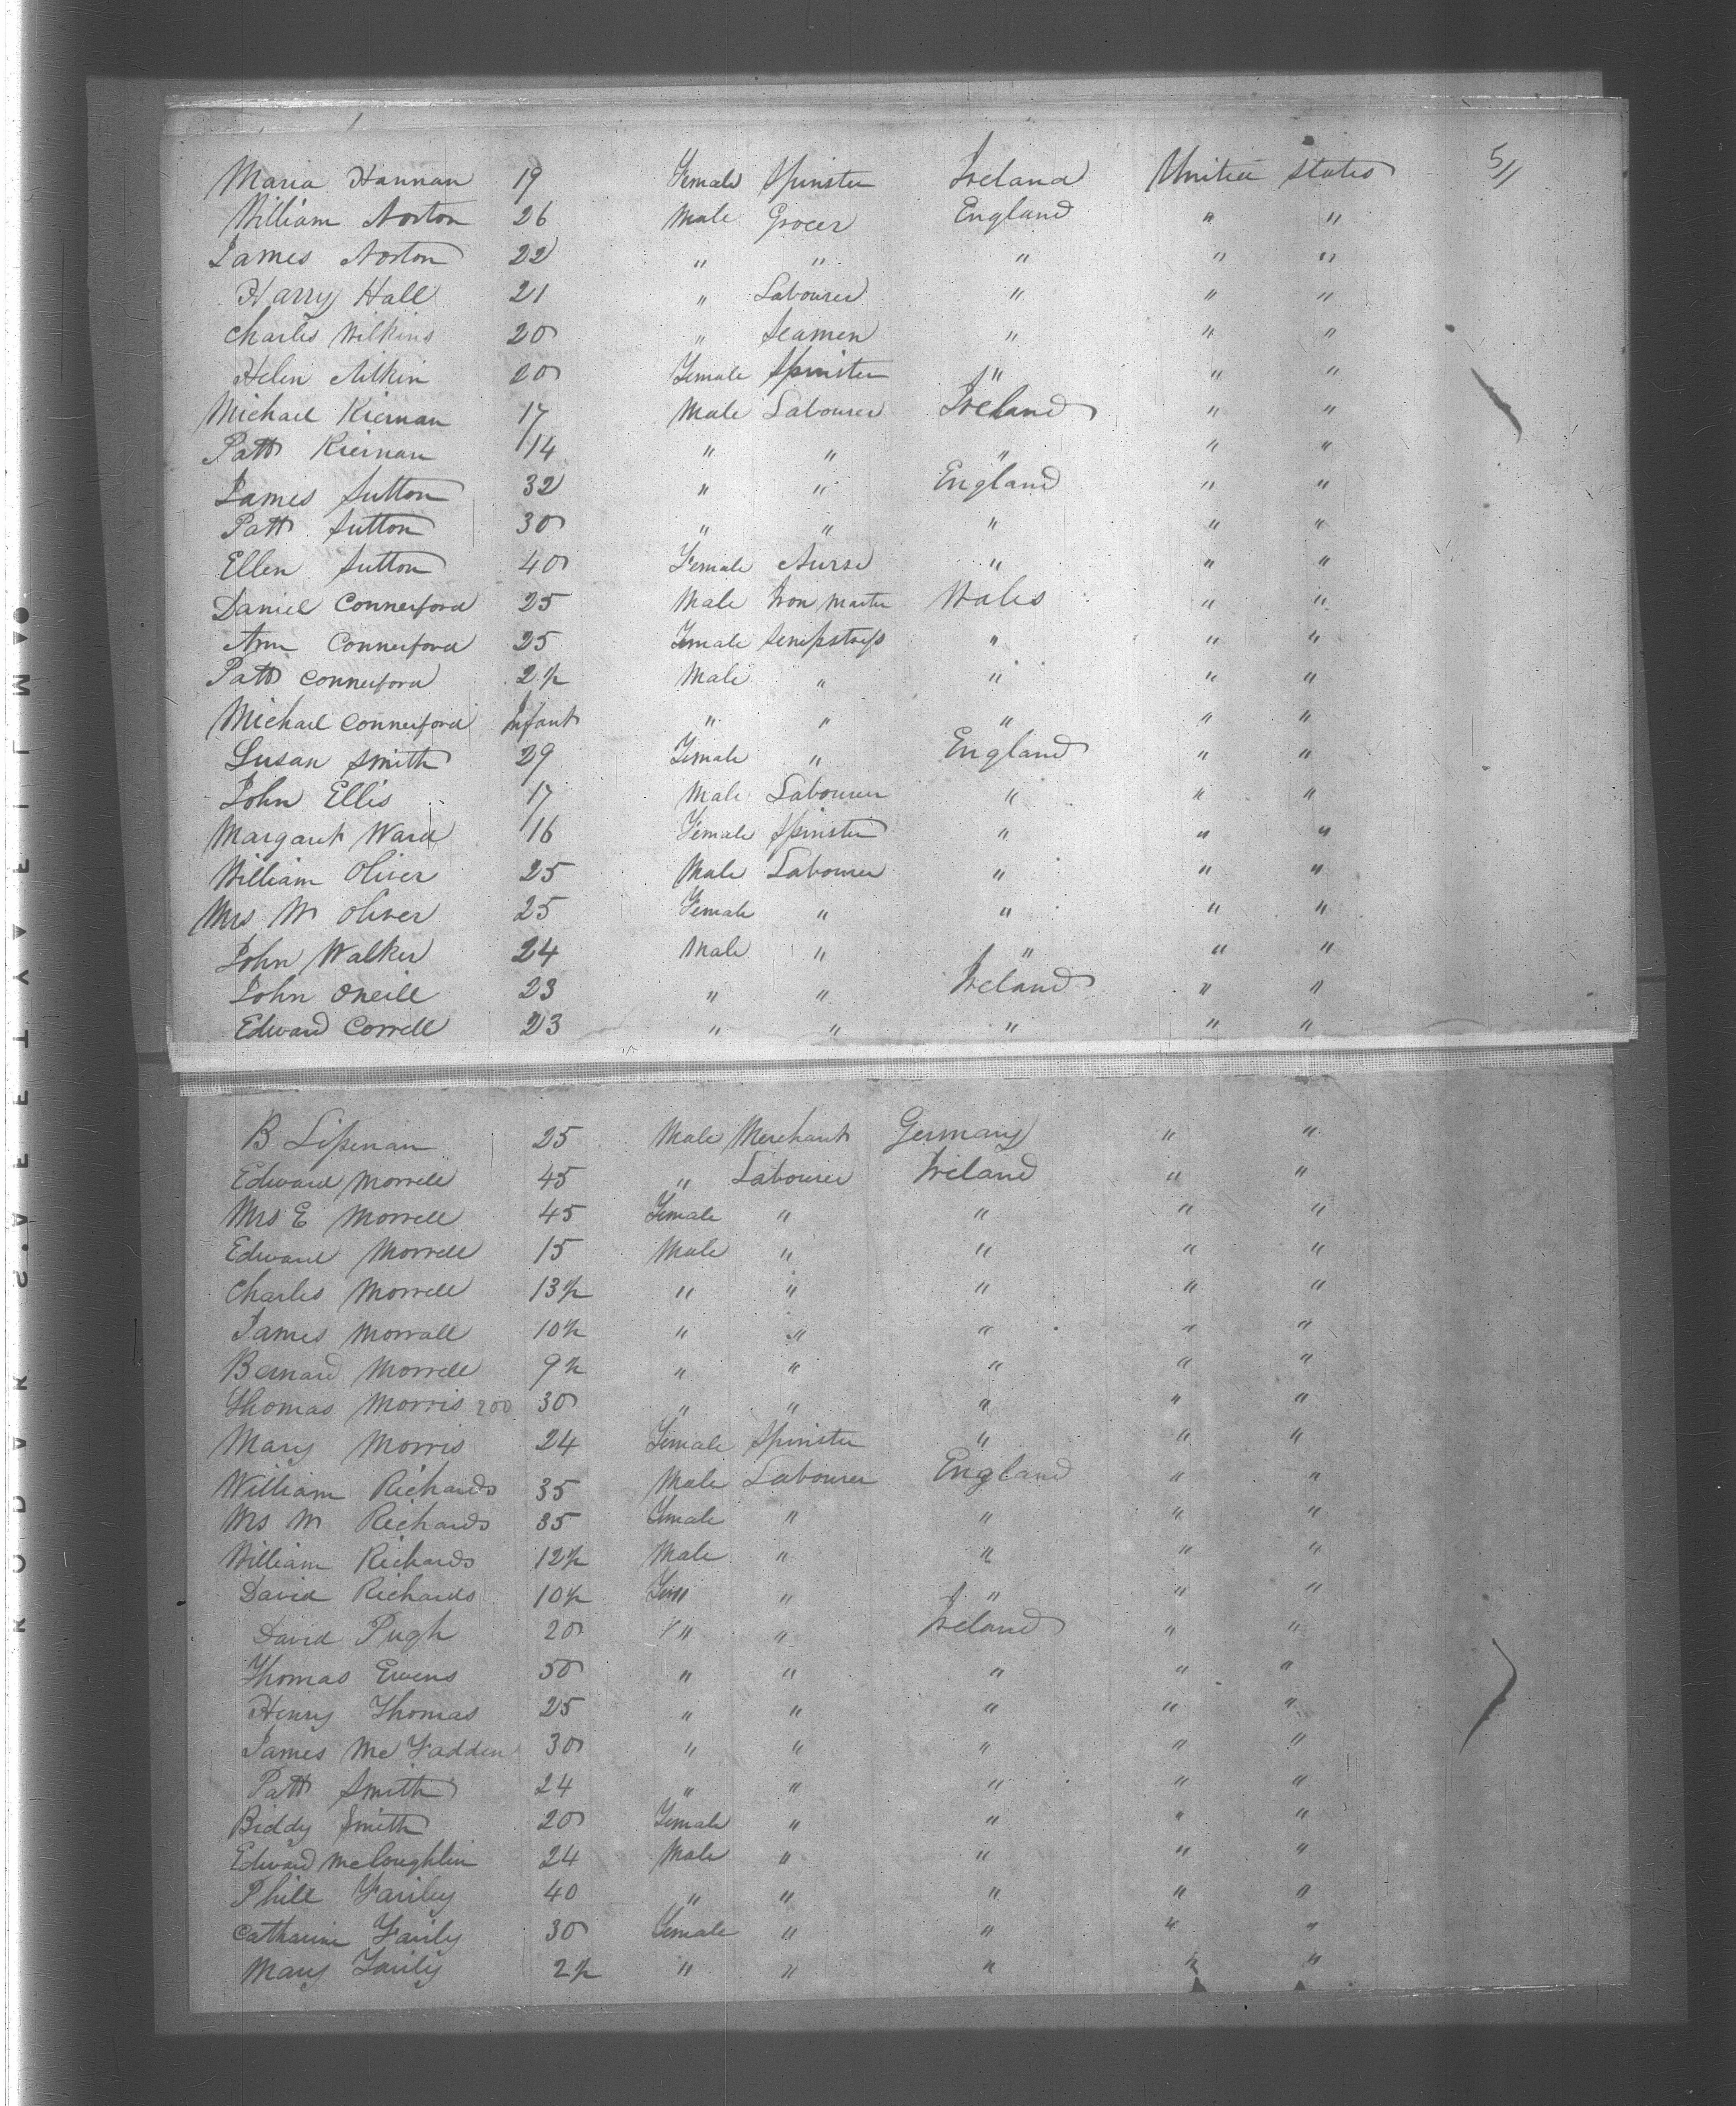 5/
Maria Hannan 19 Female Spinster Ireland United States
William Norton 26 Male Grocer England " "
James Norton 22 " " " " "
Harry Hall 21 " Labourer " " "
Charles Wilkins 20 " Seamen " " "
Helen Aitkin 20 Female Spinster " " "
Michael Kiernan 17 Male Labourer Ireland " "
Patk Kiernan 14 " " " " "
James Sutton 32 " " England " "
Patk Sutton 30 " " " " "
Ellen Sutton 40 Female Nurse " " "
Daniel Connerford 25 Male Iron Master Wales " "
Ann Connerford 25 Female Sempstress " " "
Patk Connerford 2 1/2 Male " " " "
Michael Connerford Infant " " " " "
Susan Smith 29 Female " England " "
John Ellis 17 Male Labourer " " "
Margaret Ward 16 Female Spinster " " "
William Oliver 25 Male Labourer " " "
Mrs W Oliver 25 Female " " " "
John Walker 24 Male " " " "
John Oneill 23 " " Ireland " "
Edward Correll 23 " " " " "
B Lipenan 25 Male Merchant Germany " "
Edward Morrell 45 " Labourer Ireland " "
Mrs E Morrell 45 Female " " " "
Edward Morrell 15 Male " " " "
Charles Morrell 13 1/2 " " " " "
James Morrall 10 1/2 " " " " "
Bernard Morrell 9 1/2 " " " " "
Thomas Morris 200 30 " " " " "
Mary Morris 24 Female Spinster " " "
William Richards 35 Male Labourer England " "
Mrs W Richards 35 Female " " " "
William Richards 12 1/2 Male " " " "
David Richards 10 1/2 " " " " "
David Pugh 20 " " Ireland " "
Thomas Ewens 50 " " " " "
Henry Thomas 25 " " " " "
James McFadden 30 " " " " "
Patk Smith 24 " " " " "
Biddy Smith 20 Female " " " "
Edward McLoughlin 24 Male " " " "
Phill Fariley 40 " " " " "
Catharine Farily 30 Female " " " "
Mary Farily 2 1/2 " " " " "